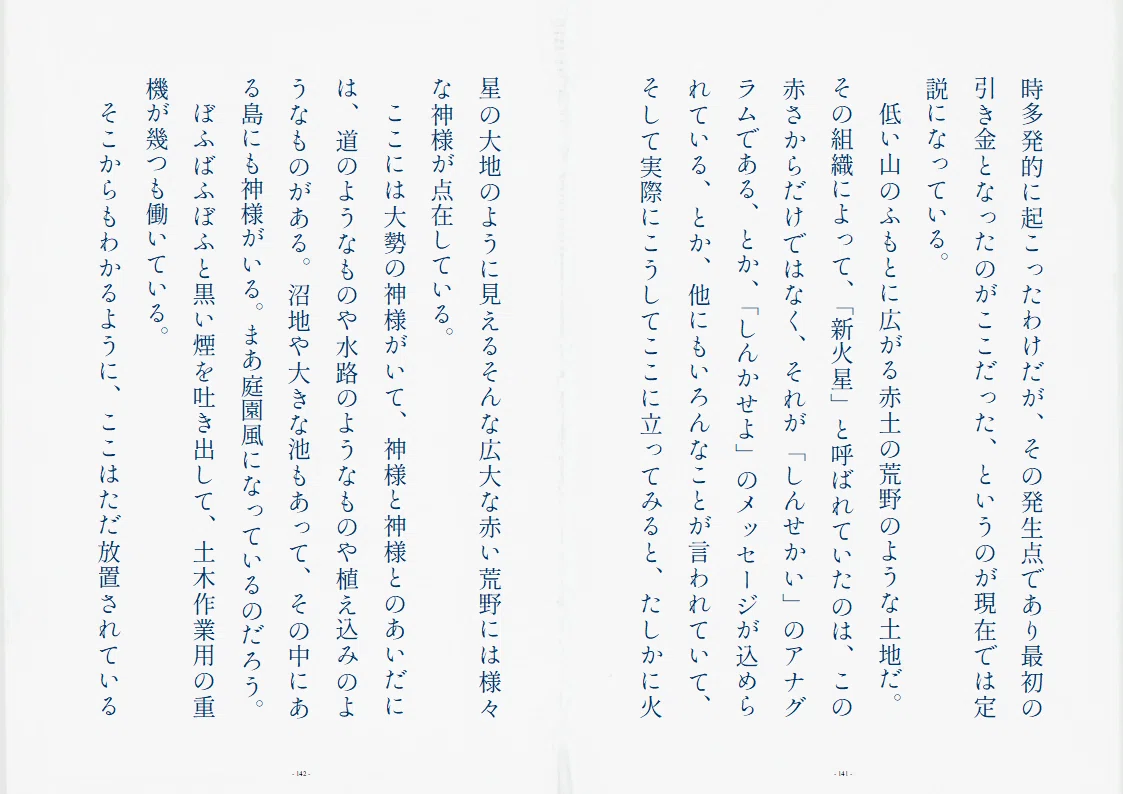 時多発的に起こったわけだが、その発生点であり最初の
引き金となったのがここだった、というのが現在では定
説になっている。
低い山のふもとに広がる赤土の荒野のような土地だ。
その組織によって、「新火星」と呼ばれていたのは、この
赤さからだけではなく、それが「しんせかい」のアナグ
ラムである、とか、「しんかせよ」のメッセージが込めら
れている、とか、他にもいろんなことが言われていて、
そして実際にこうしてここに立ってみると、たしかに火
- 141 -
星の大地のように見えるそんな広大な赤い荒野には様々
な神様が点在している。
ここには大勢の神様がいて、神様と神様とのあいだに
は、道のようなものや水路のようなものや植え込みのよ
うなものがある。沼地や大きな池もあって、その中にあ
る島にも神様がいる。まあ庭園風になっているのだろう。
ぼふばふぼふと黒い煙を吐き出して、土木作業用の重
機が幾つも働いている。
そこからもわかるように、ここはただ放置されている
- 142 -